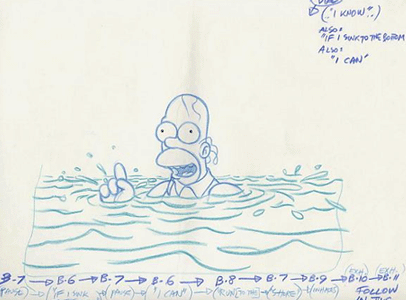 ("I KNOW"..)
ALSO:
"IF I SINK TO THE BOTTOM
ALSO:
"I CAN"
B-7 → B-6 → B-7 → B-6 → B-8 → B-7 → B-9 → B-10 → B-11
PAUSE) → ("IF I SINK → (PAUSE) → "I CAN") → ("RUN) (TO THE → SHORE)
FOLLOW